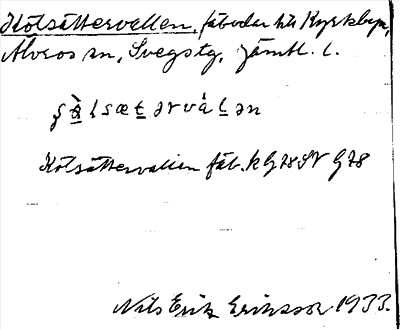 Kölsättervallen, fäbodar till Kyrkbyn,
Älvros sn, Svegs tg, Jämtl. l.
Kölsättervallen fäb. k G 78 SV G 78
Nils Erik Eriksson 1933.